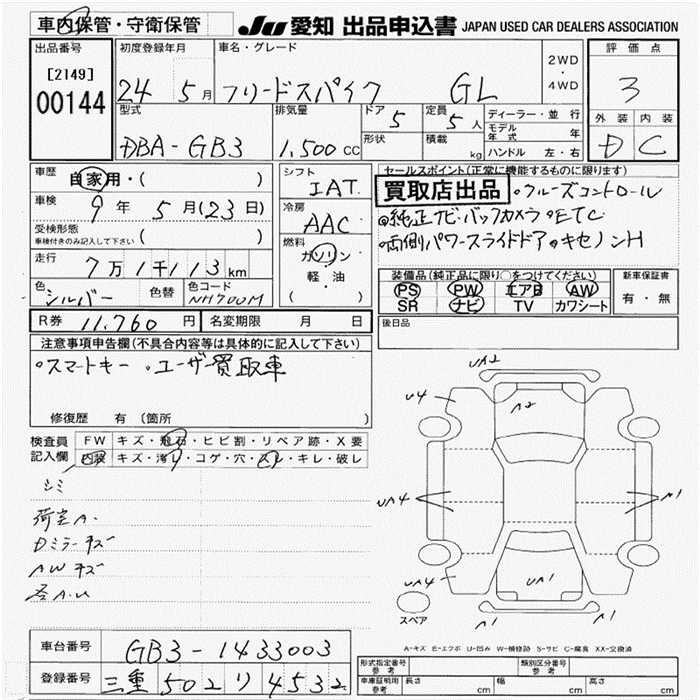 車内保管・守衛保管 JU 愛知 出品申込書 JAPAN USED CAR DEALERS ASSOCIATION
出品番号 初度登録年月 車名・グレード 2WD・4WD 評価点
[2149] 24 5月 フリードスパイク GL 3
00144
型式 排気量 ドア 定員 ディーラー・並行 外装 内装
DBA-GB3 1,500CC 5 5人 モデル年式 年 D C
形状 積載 kg ハンドル 左・右
車歴 自家用・( ) シフト IAT セールスポイント(正常に機能するものに限ります)
車検 9年 5月(23日) 冷房 AAC 買取店出品 クルーズコントロール
受検形態 純正ナビ・バックカメラ・ETC
車検付きのみ記入して下さい ( ) 燃料 両側パワースライドドア キセノンH
走行 7万1千113km ガソリン・軽・油 ( ) 装備品(純正品に限り○をつけてください) 新車保証書
色 シルバー 色替 色コード NH700M PS PW エアB AW 有・無
SR ナビ TV カワシート
R券 11,760円 名変期限 月 日 後日品
注意事項申告欄(不具合内容等は具体的に記入して下さい)
スマートキー ユーザー買取車
修復歴 有 (箇所 )
検査員記入欄 FW キズ・飛石・ヒビ割・リペア跡・X要
内装 キズ・汚レ・コゲ・穴・スレ・キレ・破レ
シミ
荷室A.
Dミラーキズ
AWキズ
各A.U
UA2
U4 A2
UA4 A1
UA4 UA1
A1 A1
スペア
A-キズ E-エクボ U-凹み W-補修跡 S-サビ C-腐食 XX-交換済
車台番号 GB3-1433003
登録番号 三重 502 り 4532
形式指定番号 参考 類別区分番号 参考
車庫証明用 参考 長さ cm 幅 cm 高さ cm